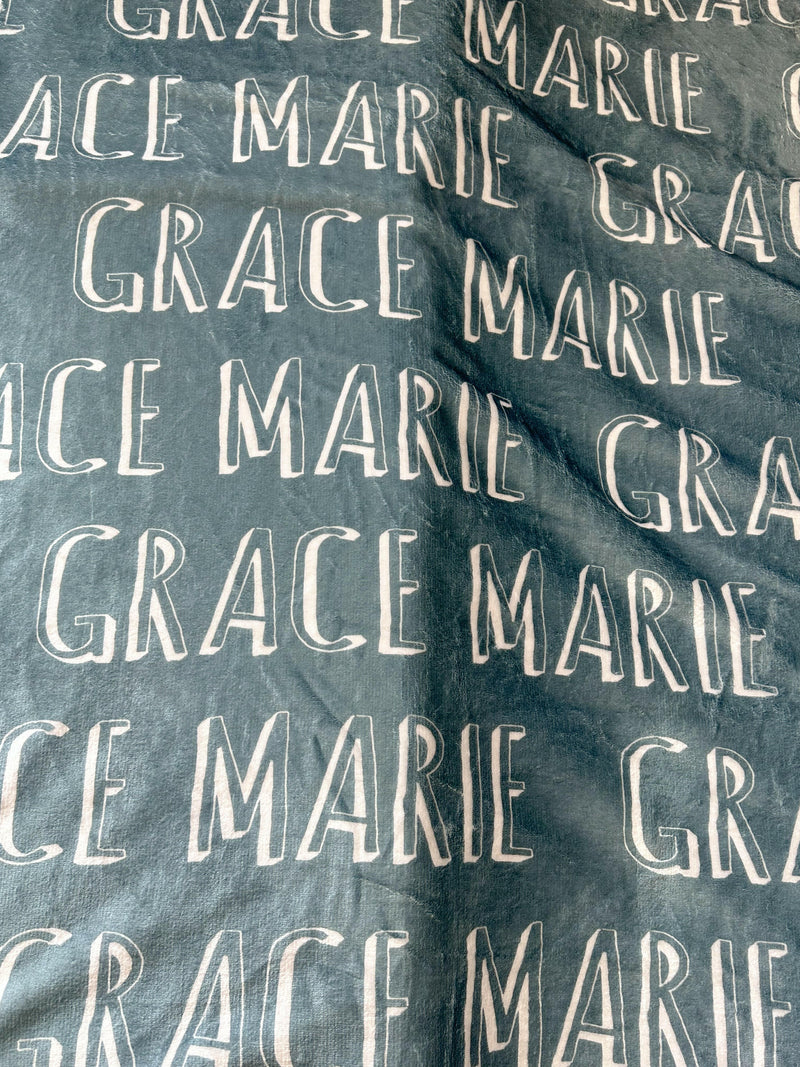 GRACE MARIE GRAC
ACE MARIE G
GRACE MARIE GRAC
ACE MARIE GRA
GRACE MARIE
CE MARIE GRA
GRACE MARIE